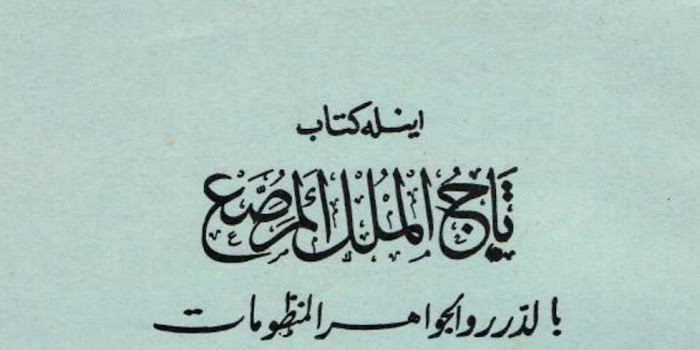 اينله كتاب
تَاجُ الْمُلْك الْمُرَصَّع
بالدّرر والجواهر المنظومات